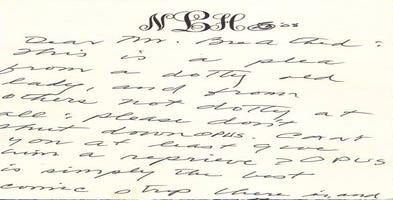 NLH '08
Dear Mr. Breathed:
This is a plea
from a dotty old
lady, and from
others not dotty at
all: please don't
shut down OPUS. Can't
you at least give
him a reprieve? OPUS
is simply the best
comic strip there is, and